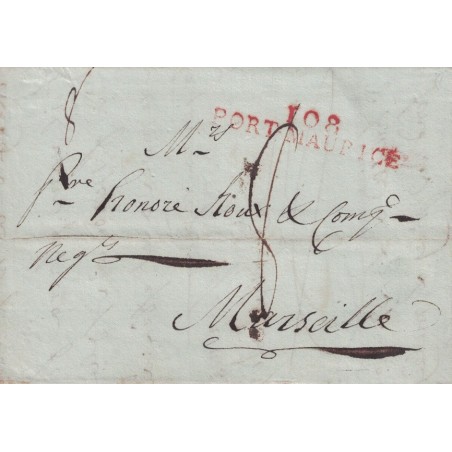 108
PORT-MAURICE
M.rs
P.re honoré Roux & Comp.e
neg.ts
Marseille